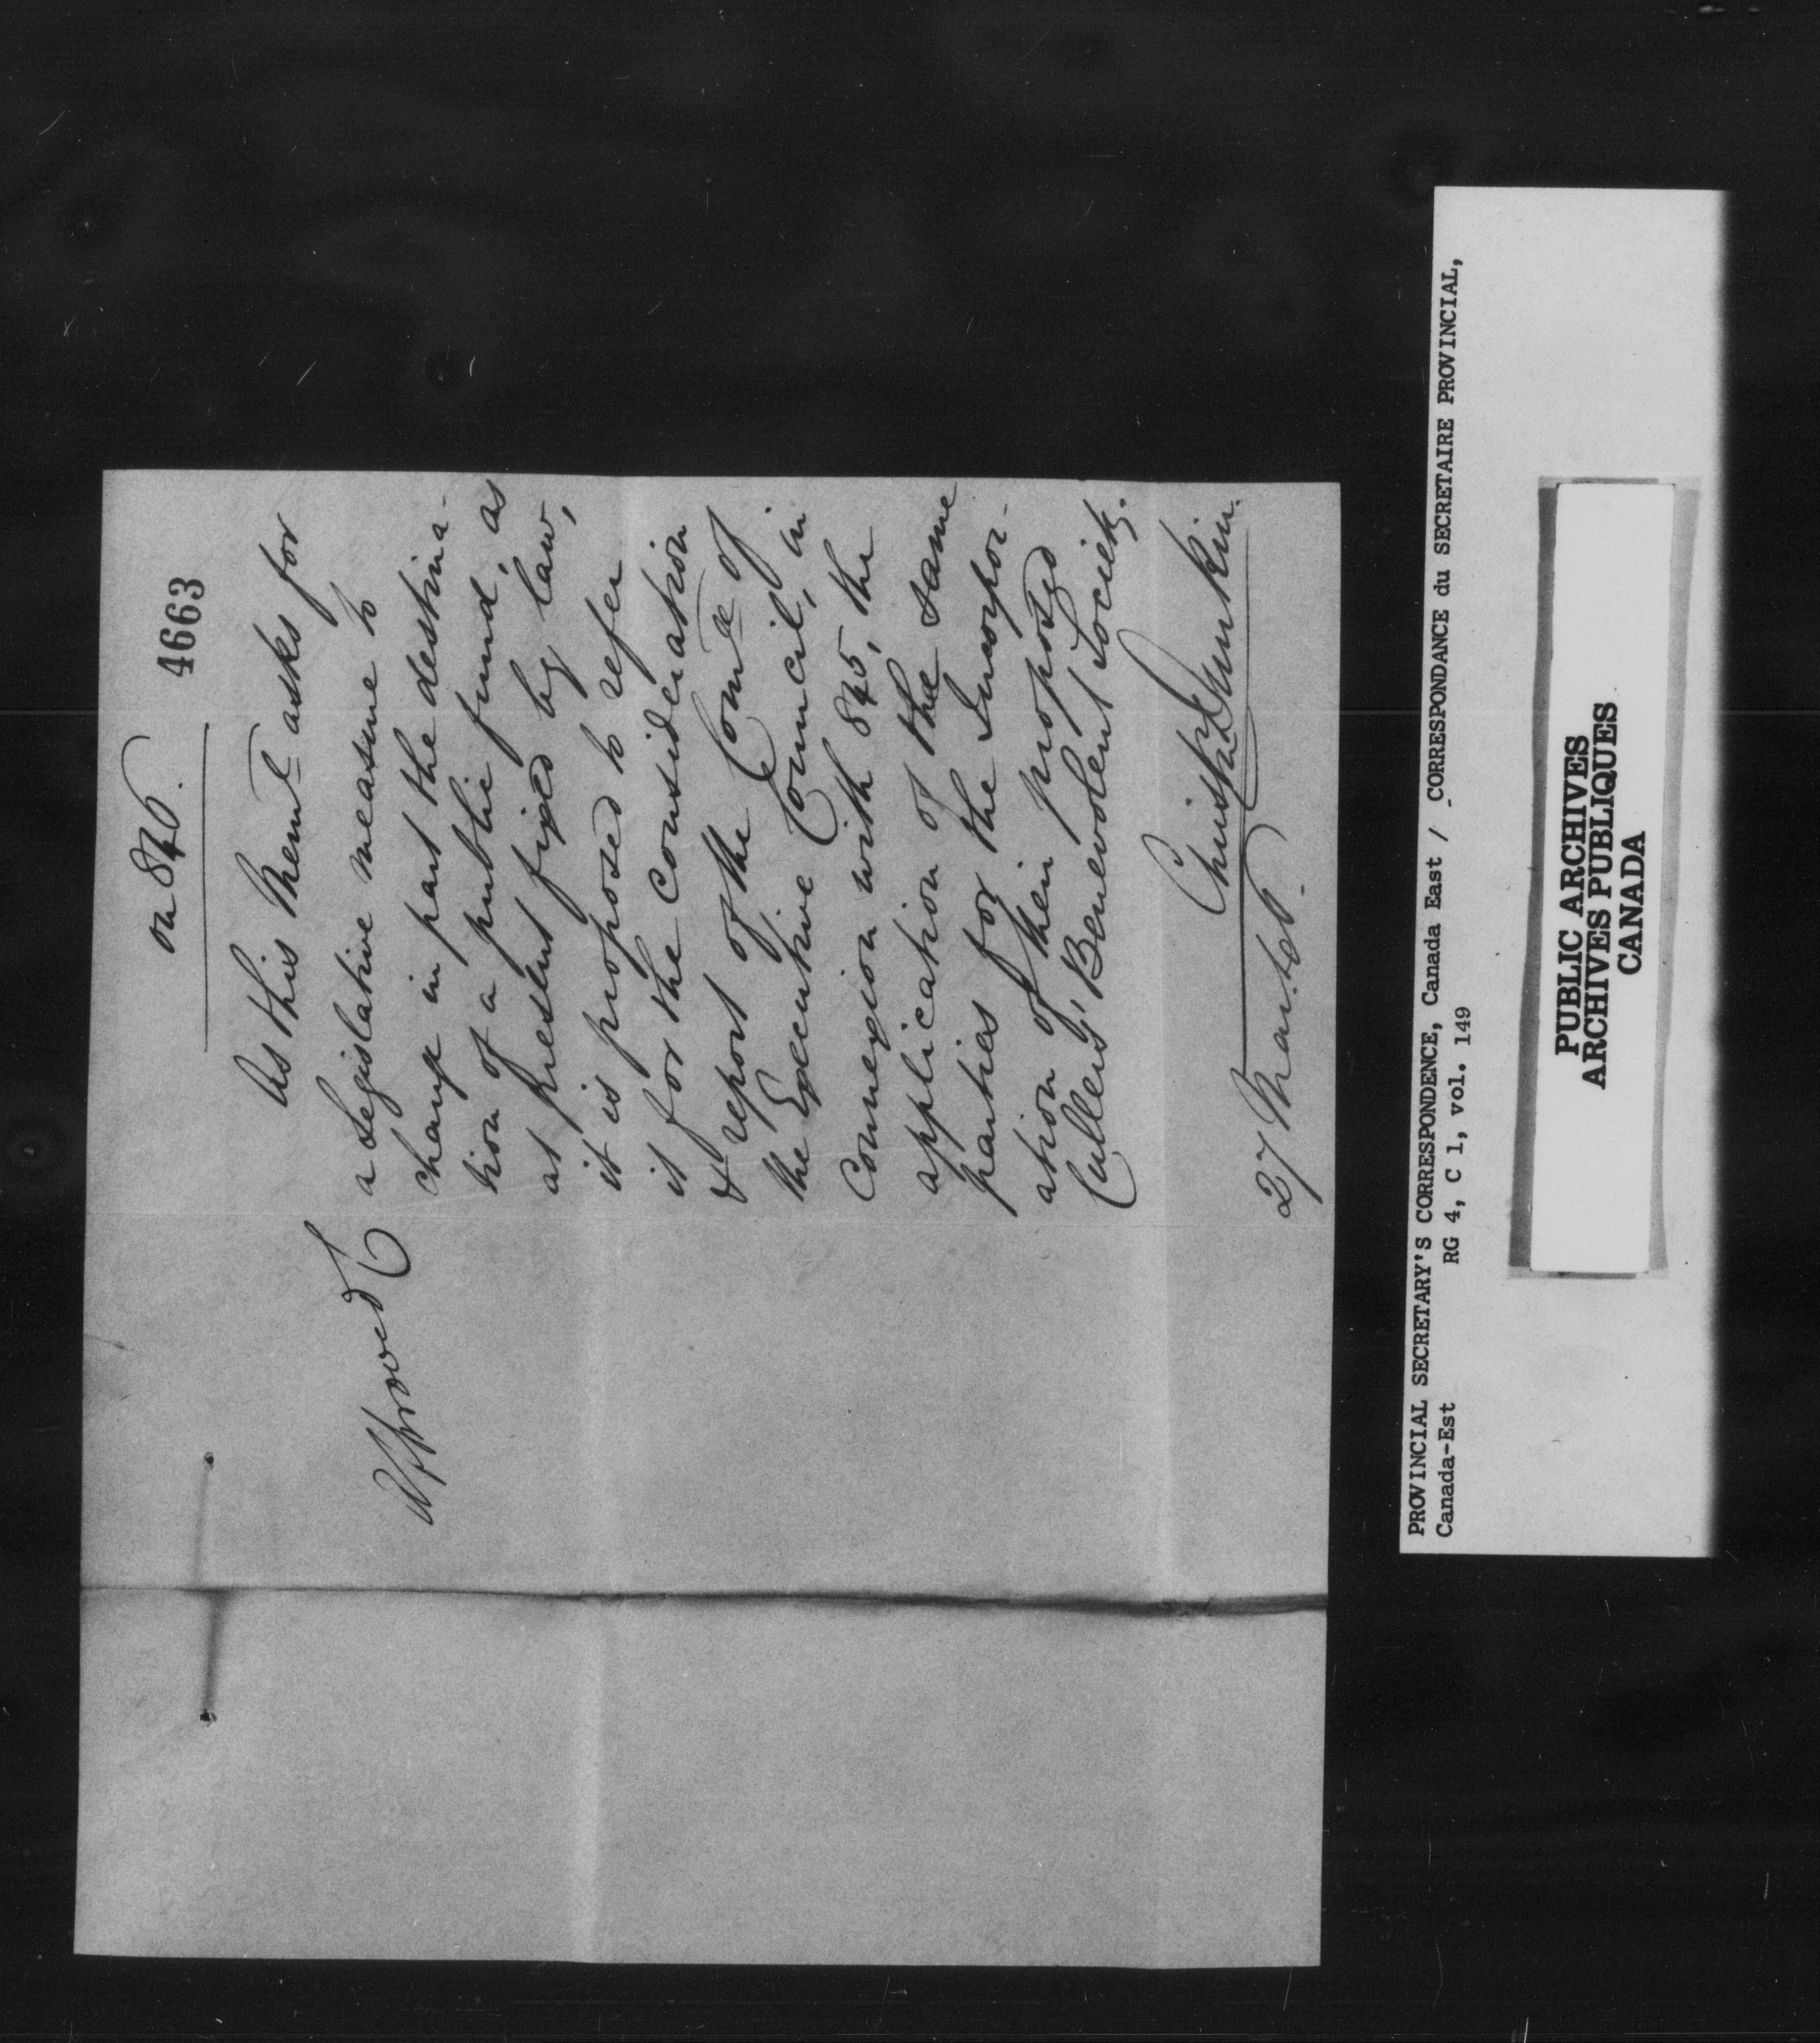 4663
on 846.
As this Meml asks for
a Legislative measure to
change in part the destina-
tion of a public fund, as
at present fixed by law,
it is proposed to refer
it for the consideration
& report of the Comee of
the Executive Council, in
Connexion with 845, the
application of the same
parties for the Incorpor-
ation of their proposed
Cullers' Benevolent Society.
Christr Dunkin.
27 Mar. 46.
Approved
PROVINCIAL SECRETARY'S CORRESPONDENCE, Canada East / CORRESPONDANCE du SECRETAIRE PROVINCIAL,
Canada-Est RG 4, C 1, vol. 149
PUBLIC ARCHIVES
ARCHIVES PUBLIQUES
CANADA